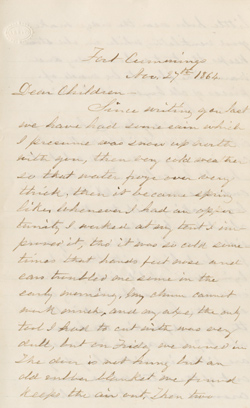 Fort Cummings
Nov. 27th 1864
Dear Children
Since writing you last
we have had some rain which
I presume was snow up north
with you, then very cold weather
so that water froze over very
thick, then it became spring
like, whenever I had an oppor
tunity I worked at my tent & im
proved it, but it was so cold some
times that hands feet nose and
ears troubled me some in the
early morning, my chum cannot
work much, and my axe, the only
tool I had to cut with was very
dull, but on Friday we moved in
The door is not hung but an
old rubber blanket we found
keeps the air out, then two